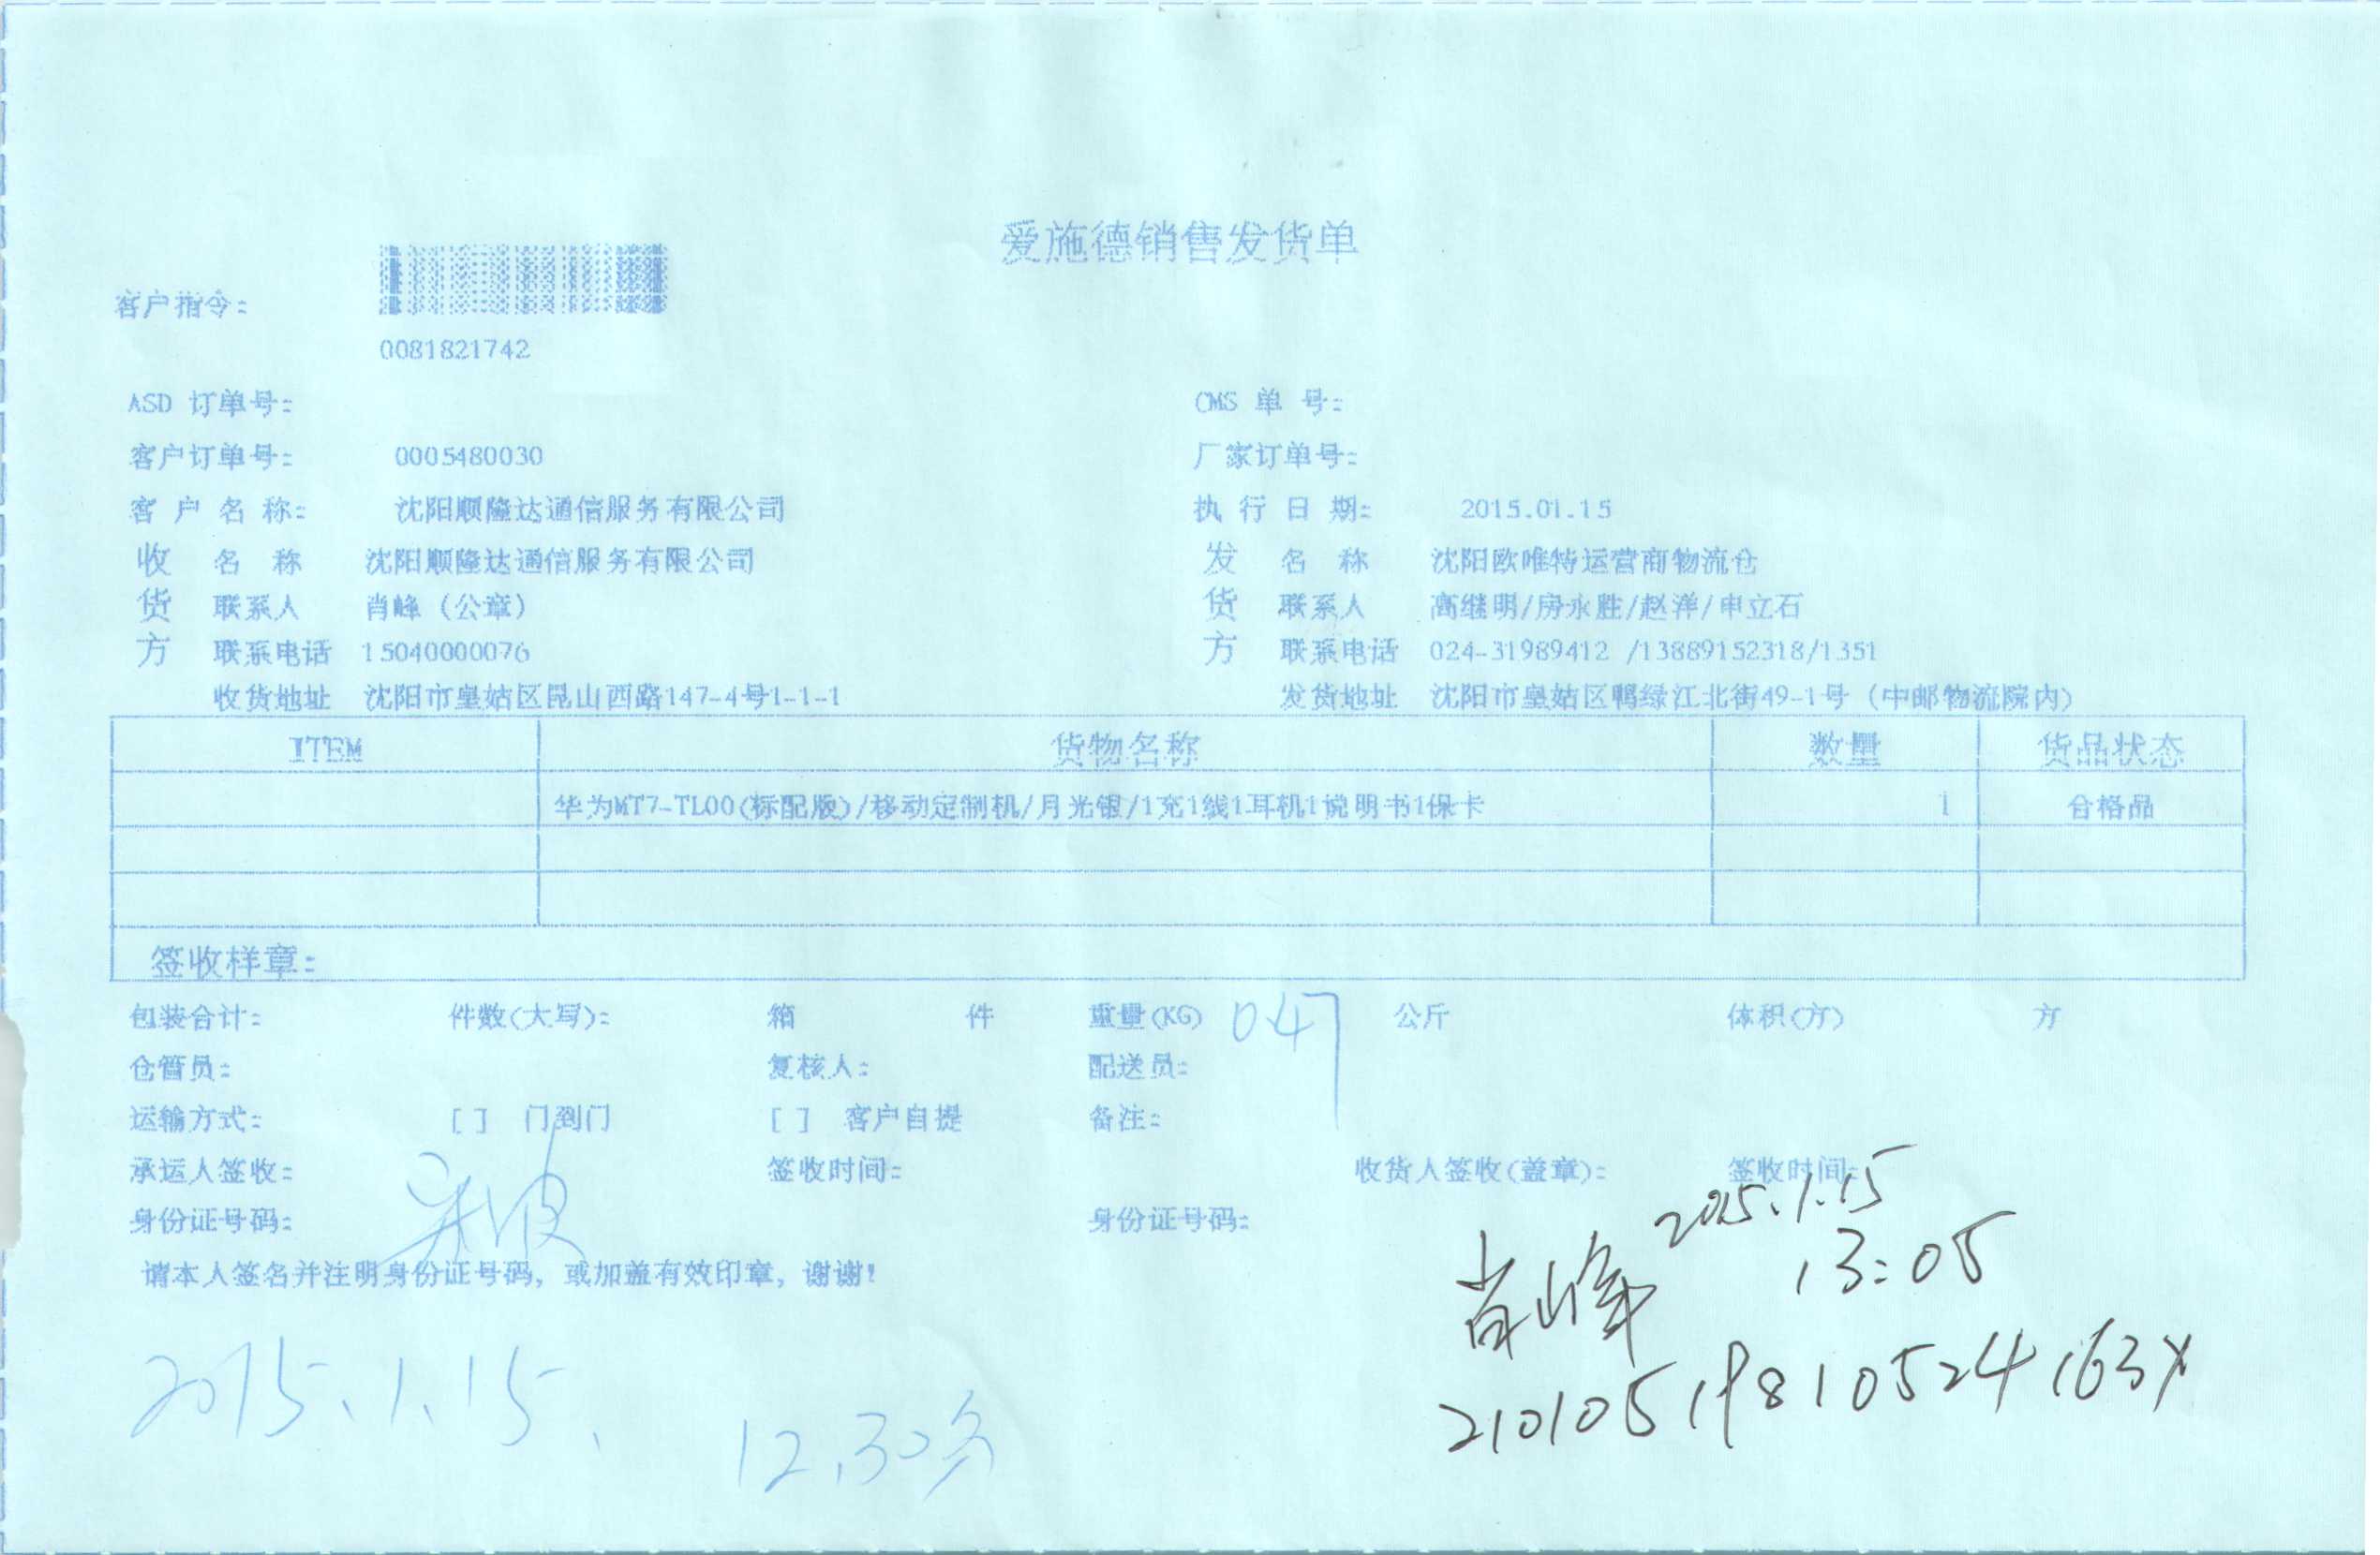 爱施德销售发货单
客户指令:
0081821742
ASD 订单号: CMS 单 号:
客户订单号: 0005480030 厂家订单号:
客 户 名 称: 沈阳顺隆达通信服务有限公司 执 行 日 期: 2015.01.15
收 名 称 沈阳顺隆达通信服务有限公司 发 名 称 沈阳欧唯特运营商物流仓
货 联系人 肖峰（公章） 货 联系人 高继明/房永胜/赵洋/申立石
方 联系电话 15040000076 方 联系电话 024-31989412 /13889152318/1351
收货地址 沈阳市皇姑区昆山西路147-4号1-1-1 发货地址 沈阳市皇姑区鸭绿江北街49-1号（中邮物流院内）
ITEM 货物名称 数量 货品状态
华为MT7-TL00(标配版)/移动定制机/月光银/1充1线1耳机1说明书1保卡 1 合格品
签收样章:
包装合计: 件数(大写): 箱 件 重量(KG) 0.47 公斤 体积(方) 方
仓管员: 复核人: 配送员:
运输方式: [ ] 门到门 [ ] 客户自提 备注:
承运人签收: 签收时间: 收货人签收(盖章): 签收时间:
2015.1.15
身份证号码: 身份证号码:
13:05
请本人签名并注明身份证号码，或加盖有效印章，谢谢!
肖峰
21010519810524163X
2015.1.15.
12.30分